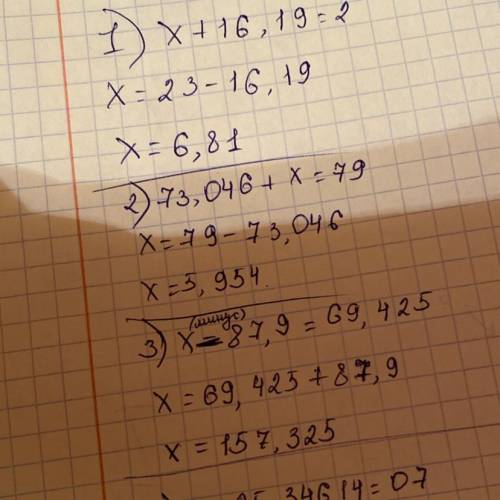 1) x + 16,19 = 2
x = 23 - 16,19
x = 6,81
2) 73,046 + x = 79
x = 79 - 73,046
x = 5,954.
(минус)
3) x - 87,9 = 69,425
x = 69,425 + 87,9
x = 157,325
5,34614 = 07